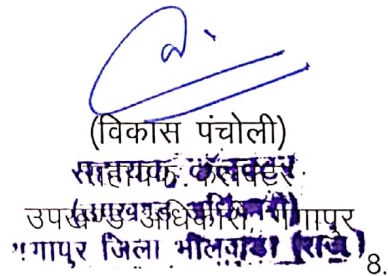 (विकास पंचोली)
सहायक कलक्टर
उपखण्ड अधिकारी, गंगापुर
गंगापुर जिला भीलवाड़ा (राज.)
8.